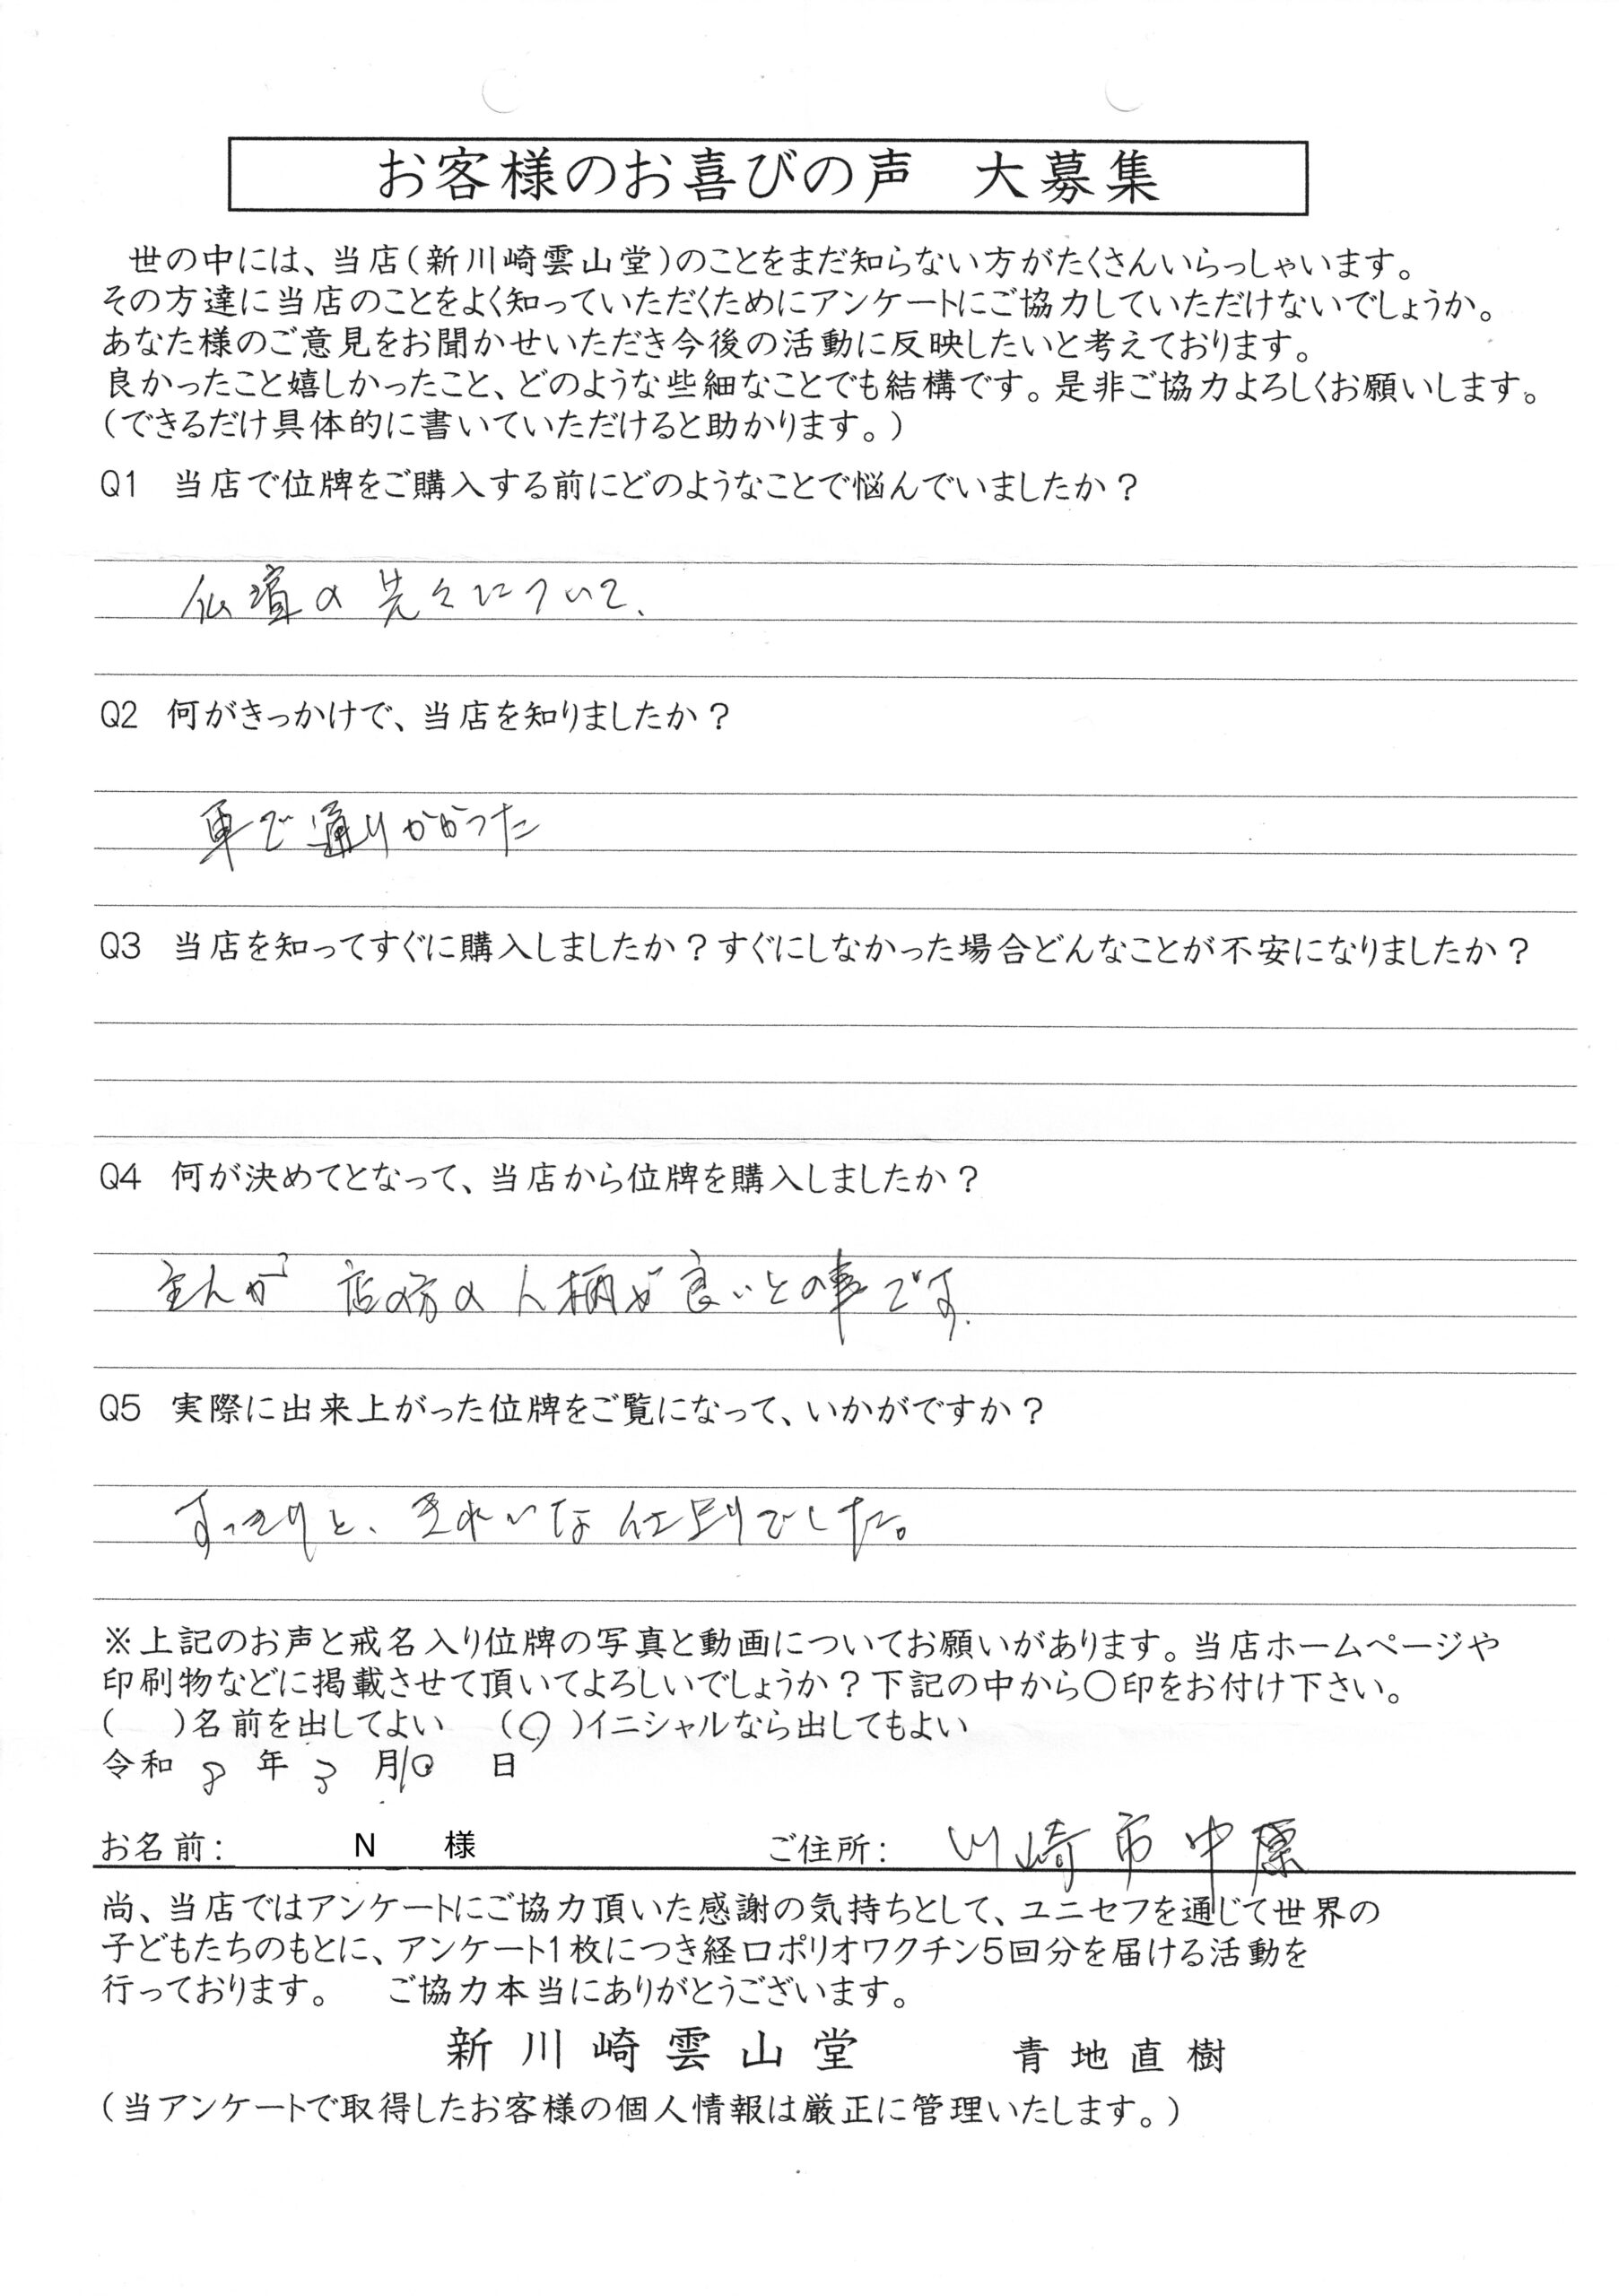 お客様のお喜びの声　大募集
世の中には、当店(新川崎雲山堂)のことをまだ知らない方がたくさんいらっしゃいます。
その方達に当店のことをよく知っていただくためにアンケートにご協力していただけないでしょうか。
あなた様のご意見をお聞かせいただき今後の活動に反映したいと考えております。
良かったこと嬉しかったこと、どのような些細なことでも結構です。是非ご協力よろしくお願いします。
(できるだけ具体的に書いていただけると助かります。)
Q1　当店で位牌をご購入する前にどのようなことで悩んでいましたか？
仏壇の先々について、
Q2　何がきっかけで、当店を知りましたか？
車で通りがかった
Q3　当店を知ってすぐに購入しましたか？すぐにしなかった場合どんなことが不安になりましたか？
Q4　何が決めてとなって、当店から位牌を購入しましたか？
店の方の人柄が良いとの事です.
Q5　実際に出来上がった位牌をご覧になって、いかがですか？
すっきりと、きれいなでした。
※上記のお声と戒名入り位牌の写真と動画についてお願いがあります。当店ホームページや
印刷物などに掲載させて頂いてよろしいでしょうか？下記の中から〇印をお付け下さい。
(　　)名前を出してよい　(○)イニシャルなら出してもよい
令和 8 年 3 月10 日
お名前：　N　様　ご住所：川崎市中原
尚、当店ではアンケートにご協力頂いた感謝の気持ちとして、ユニセフを通じて世界の
子どもたちのもとに、アンケート1枚につき経口ポリオワクチン5回分を届ける活動を
行っております。　ご協力本当にありがとうございます。
新川崎雲山堂　青地直樹
(当アンケートで取得したお客様の個人情報は厳正に管理いたします。)